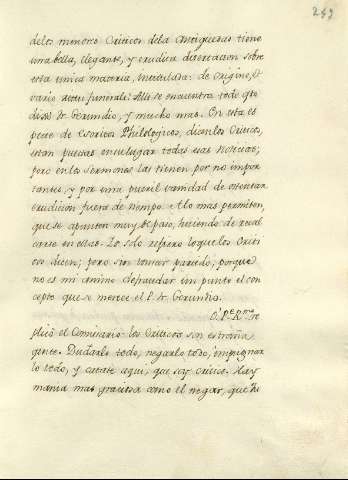 249
de los menores Criticos de la Antiguedad tiene
una bella, elegante, y erudita disertacion sobre
esta unica materia, intitulada: de Origine, &
vario ritu funerali: Alli se encuentra todo qto
dixo Fr. Gerundio, y mucho mas. En esta es
pecie de Escritos Philologicos, dicen los Criticos,
estan puestas en su lugar todas esas Noticias;
pero en los Sermones las tienen por no impor
tantes, y por una pueril vanidad de ostentar
erudicion fuera de tiempo. A lo mas permiten,
que se apunten muy de paso, huiendo de recal
carse en ellas. Yo solo refiero lo que los Criti
cos dicen; pero sin tomar partido, porque
no es mi animo defraudar un punto el con
cepto que se merece el P. Fr. Gerundio.
O! Pe. Rmo re
plicó el Comisario: los Criticos son estraña
gente. Dudarlo todo, negarlo todo, impugnar
lo todo, y catate aqui, que soy Critico. Hay
mania mas graciosa como el negar, que